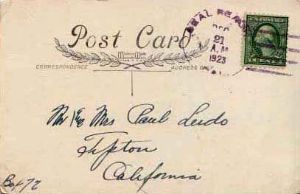 Post Card
CORRESPONDENCE
ADDRESS ONLY
DEC
21
A.M
1923
Mr & Mrs Paul Ludo
Tipton
California
Box 72